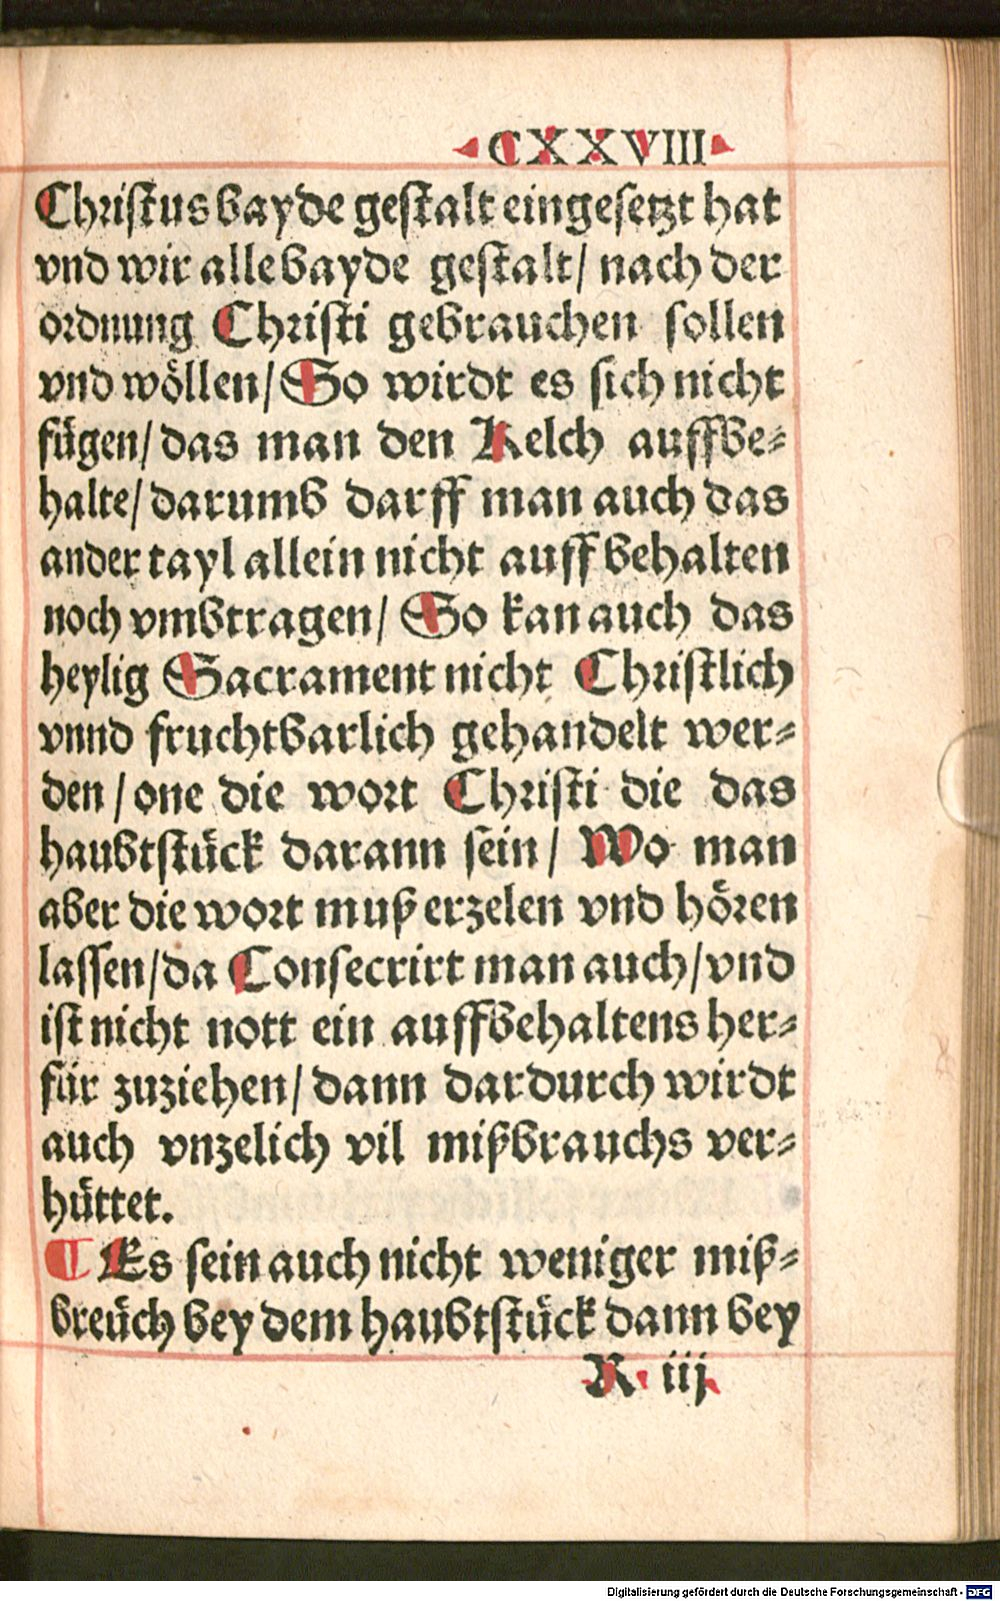 CXXVIII
Christus bayde gestalt eingesetzt hat
vnd wir alle bayde gestalt/ nach der
ordnung Christi gebrauchen sollen
vnd wöllen/ So wirdt es sich nicht
fügen/ das man den Kelch auffbe-
halte/ darumb darff man auch das
ander tayl allein nicht auff behalten
noch vmbtragen/ So kan auch das
heylig Sacrament nicht Christlich
vnnd fruchtbarlich gehandelt wer-
den/ one die wort Christi die das
haubtstück darann sein/ Wo man
aber die wort muß erzelen vnd hören
lassen/ da Consecrirt man auch/ vnd
ist nicht nott ein auffbehaltens her-
für zuziehen/ dann dardurch wirdt
auch vnzelich vil mißbrauchs ver-
hüttet.
¶ Es sein auch nicht weniger miß-
breüch bey dem haubtstück dann bey
R iij
Digitalisierung gefördert durch die Deutsche Forschungsgemeinschaft - DFG